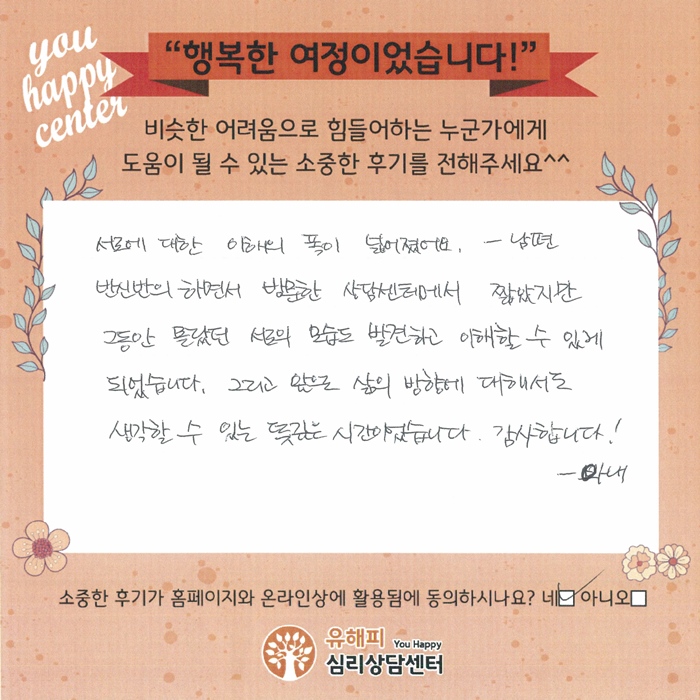 you
happy
center
“행복한 여정이었습니다!”
비슷한 어려움으로 힘들어하는 누군가에게
도움이 될 수 있는 소중한 후기를 전해주세요^^
서로에 대한 이해의 폭이 넓어졌어요. - 남편
반신반의 하면서 방문한 상담센터에서 짧았지만
그동안 몰랐던 서로의 모습도 발견하고 이해할 수 있게
되었습니다. 그리고 앞으로 삶의 방향에 대해서도
생각할 수 있는 뜻깊은 시간이었습니다. 감사합니다!
- 아내
소중한 후기가 홈페이지와 온라인상에 활용됨에 동의하시나요? 네☑ 아니오☐
유해피 You Happy
심리상담센터